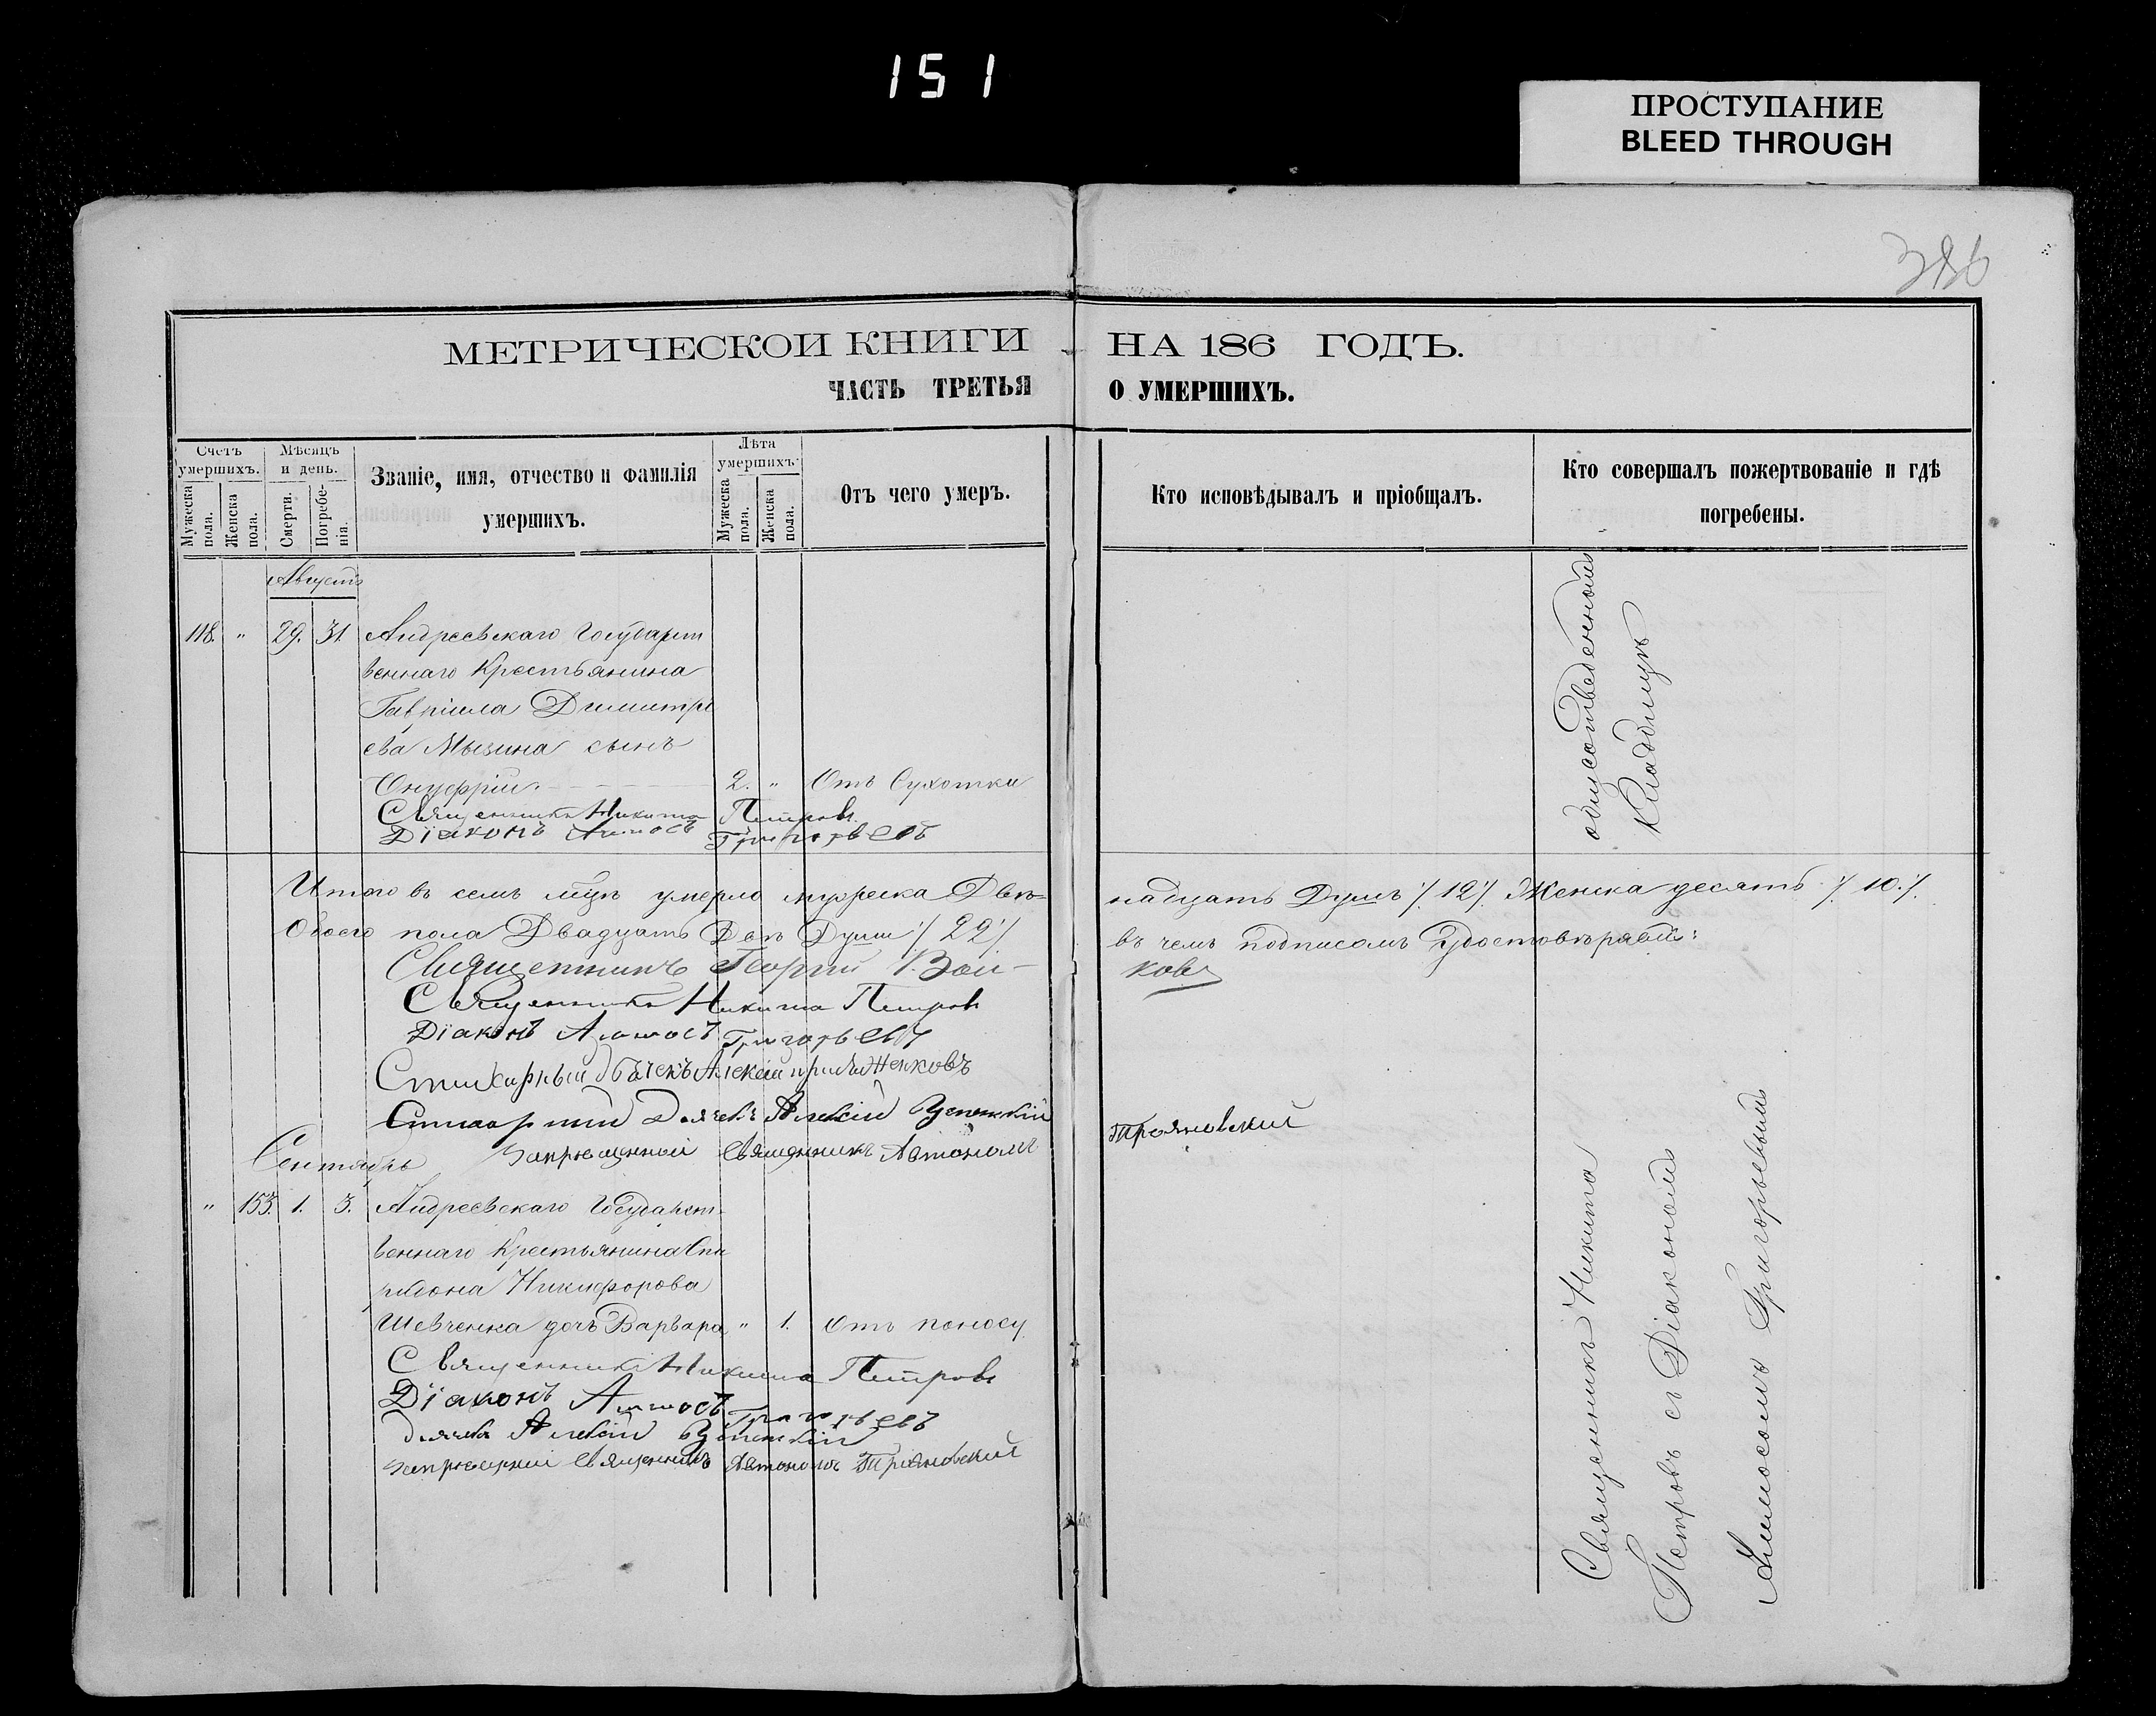 151
ПРОСТУПАНИЕ
BLEED THROUGH
386
МЕТРИЧЕСКОЙ КНИГИ НА 186 ГОДЪ.
ЧАСТЬ ТРЕТЬЯ О УМЕРШИХЪ.
Счетъ умершихъ.
Мужеска пола.
Женска пола.
Мѣсяцъ и день.
Смерти.
Погребенія.
Званіе, имя, отчество и фамилія
умершихъ.
Лѣта умершихъ.
Мужеска пола.
Женска пола.
Отъ чего умеръ.
Кто исповѣдывалъ и пріобщалъ.
Кто совершалъ пожертвованіе и гдѣ
погребены.
Августъ
118. " 29. 31. Андреевскаго Государст
веннаго Крестьянина
Гавріила Димитрі
ева Мызина сынъ
Онуфрій. 2. " Отъ Сухотки
Священникъ Никита Петровъ
Діаконъ Аммосъ Григорьевъ
общественномъ
Кладбищѣ
Итого въ семъ мцѣ умерло мужеска Двѣ=
надцать Душъ ٪ 12 ٪ Женска десять ٪ 10 ٪
Обоего пола Двадцать Двѣ Души ٪ 22 ٪
въ чемъ подписомъ Удостовѣряемъ:
Священникъ Георгій Вой-
ковъ
Священникъ Никита Петровъ
Діаконъ Аммосъ Григорьевъ
Стихарный дьячекъ Алексій
дьячекъ Алексій Успенскій
запрещенный священникъ Автономъ
Трояновскій
Сентябрь
" 153. 1. 3. Андреевскаго Государст-
веннаго Крестьянина Спи
ридона Никифорова
Шевченка дочь Варвара " 1. Отъ поносу
Священникъ Никита Петровъ
Діаконъ Аммосъ Григорьевъ
дьячекъ Алексій Успенскій
запрещенный священникъ Автономъ Трояновскій
Священникъ Никита
Петровъ съ Діакономъ
Аммосомъ Григорьевымъ